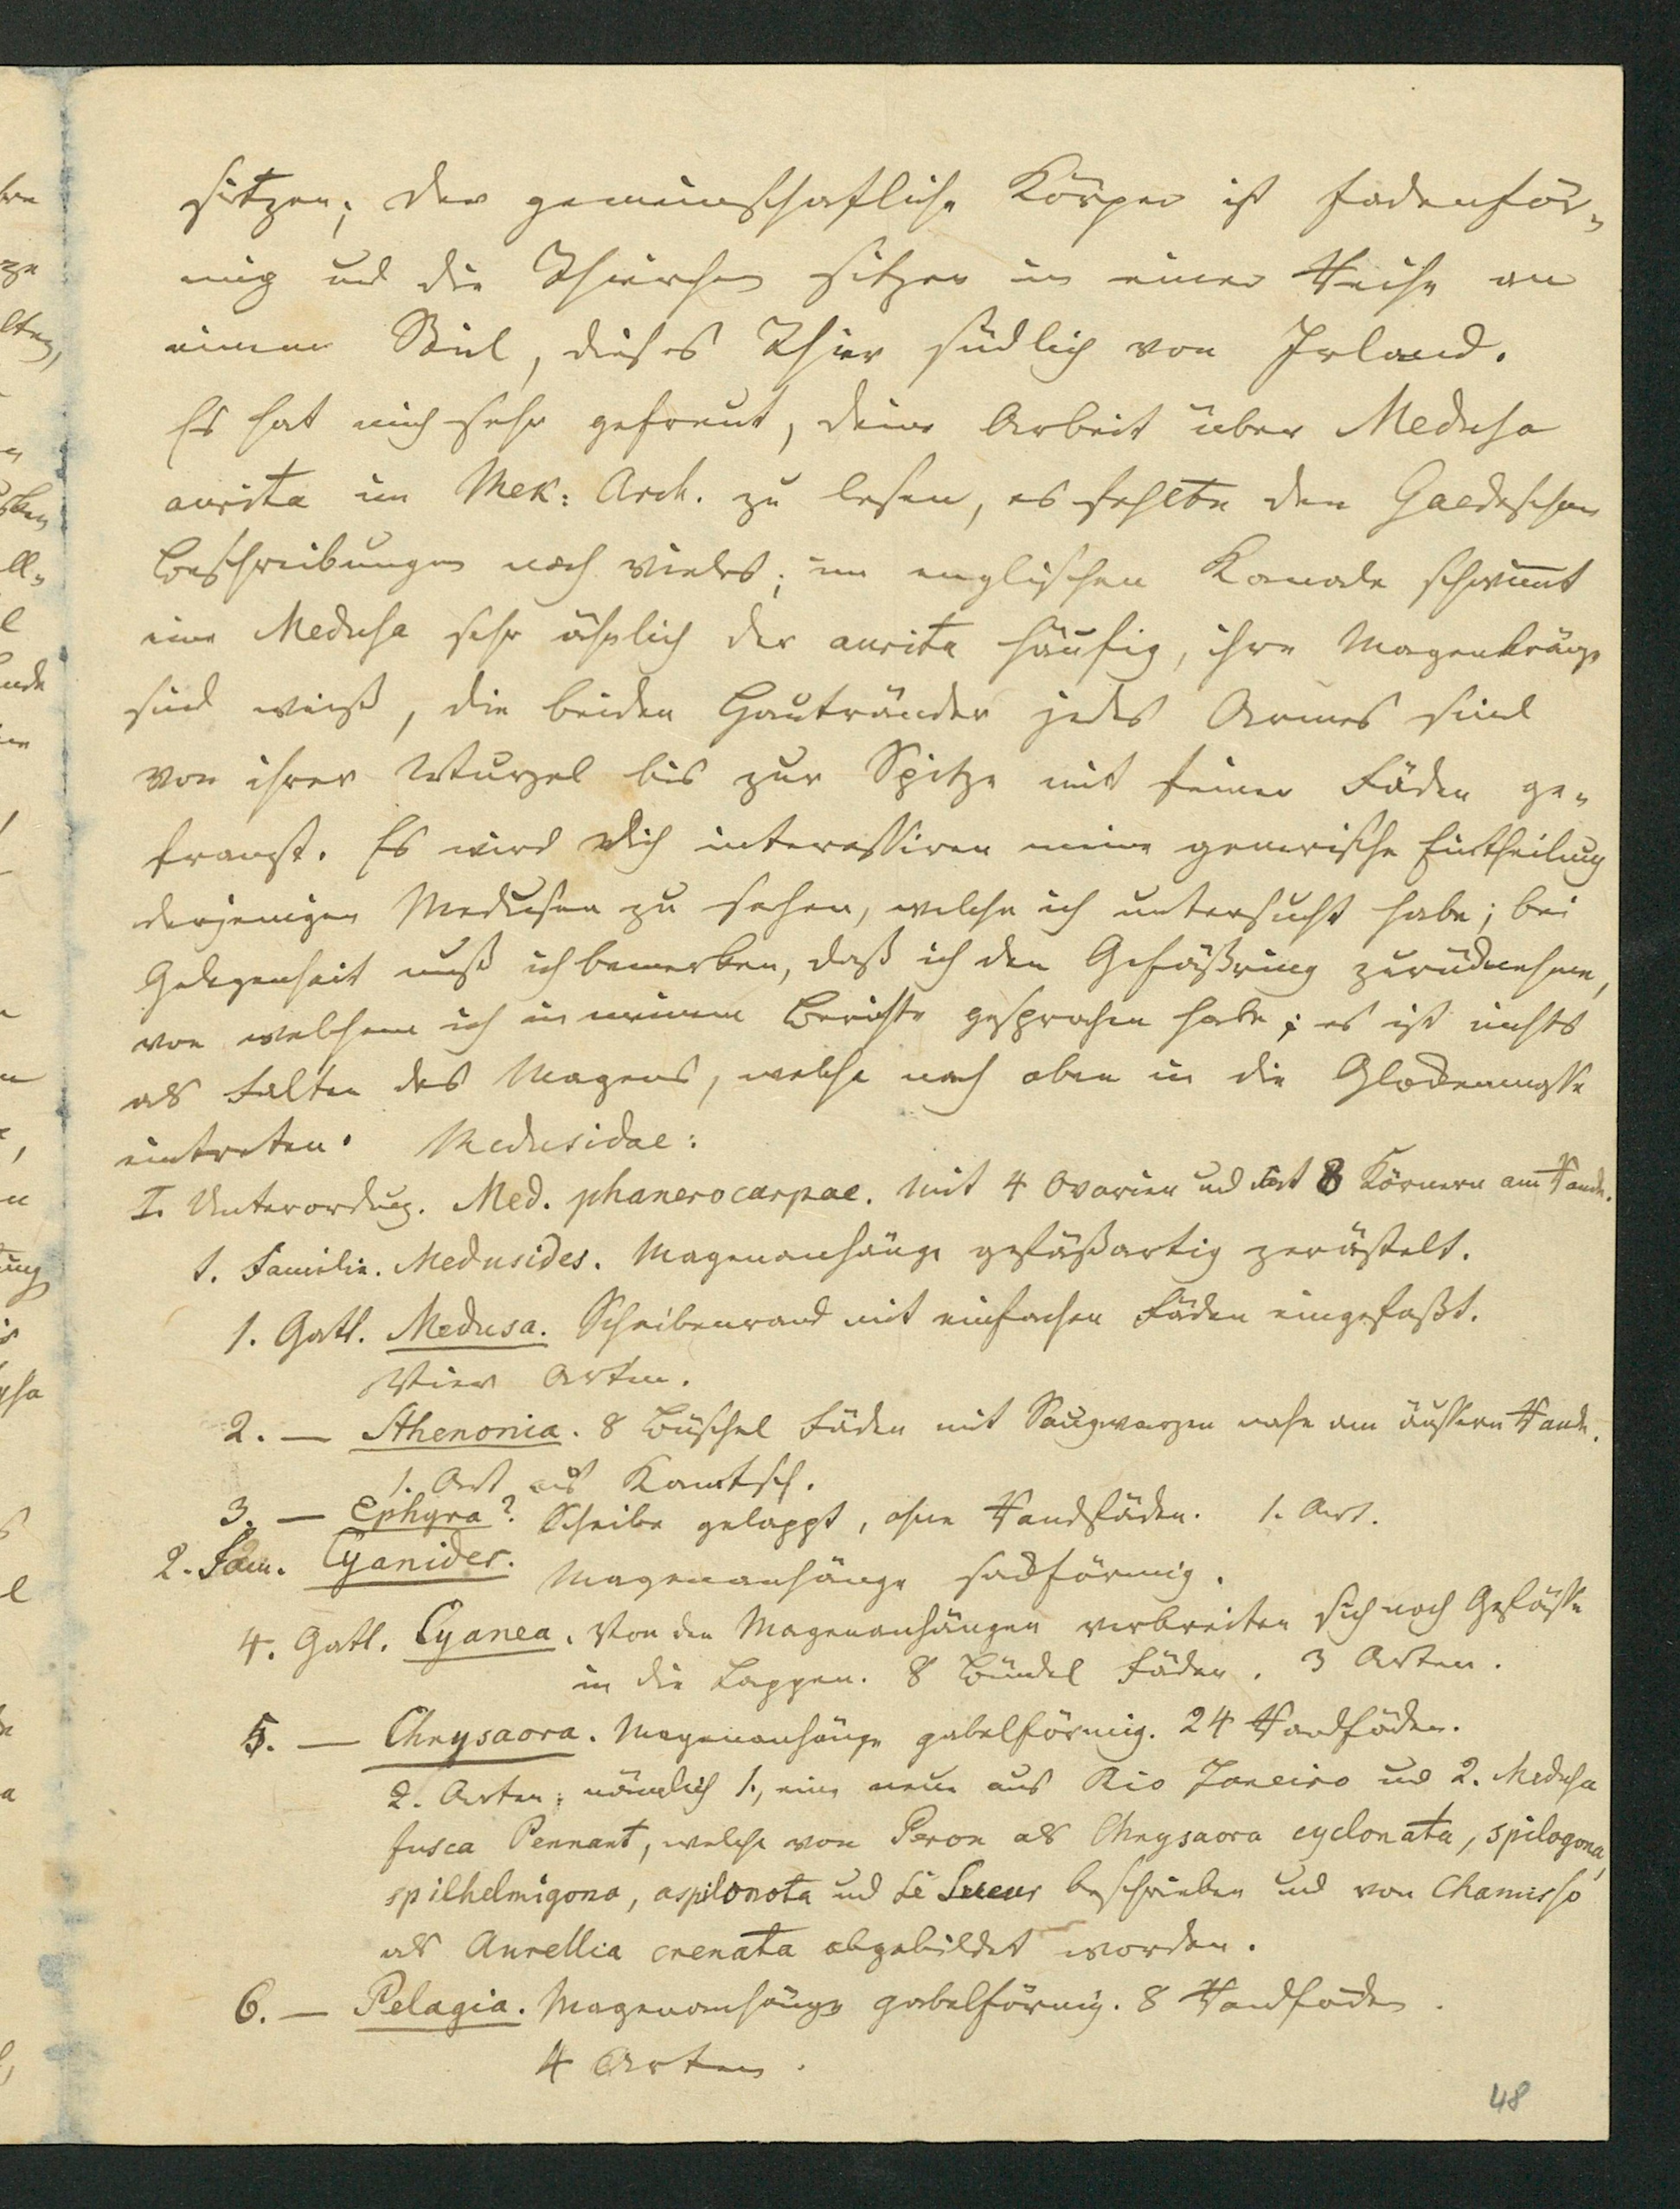 sitzen; der gemeinschaftliche Körper ist fadenför-
mig und die Thierchen sitzen in einer Reihe an
einem Stiel, dieses Thier südlich von Irland.
Es hat mich sehr gefreut, deine Arbeit über Medusa
aurita im Mek: Arch. zu lesen, es fehlte den Gaedeschen
Beschreibungen noch vieles; im englischen Kanale schwimt
eine Medusa sehr ähnlich der aurita häufig, ihre Magenkränze
sind weiß, die beiden Hautränder jedes Armes sind
von ihrer Wurzel bis zur Spitze mit feinen Fäden ge-
franzt. Es wird dich interessiren meine generische Eintheilung
derjenigen Medusen zu sehen, welche ich untersucht habe; bei
Gelegenheit muß ich bemerken, daß ich den Gefäßring zurücknehme,
von welchem ich in meinem Berichte gesprochen habe; es ist nichts
als Falten des Magens, welche nach oben in die Glockenmasse
eintreten. Medusidae:
I. Unterordnug. Med. phanerocarpae. Mit 4 Ovarien und 8 Körnern am Rande.
1. Familie. Medusides. Magenanhänge gefäßartig zerästelt.
1. Gatt. Medusa. Scheibenrand mit einfachen Fäden eingefaßt.
Vier Arten.
2. — Sthenonia. 8 Büschel Fäden mit Saugwarzen nahe am äussern Rande.
1. Art aus Kamtsch.
3. — Ephyra? Scheibe gelappt, ohne Randfäden. 1. Art.
2. Fam. Cyanides. Magenanhänge sackförmig.
4. Gatt. Cyanea. Von den Magenanhängen verbreiten sich noch Gefäße
in die Lappen. 8 Bündel Fäden. 3 Arten.
5. — Chrysaora. Magenanhänge gabelförmig. 24 Randfäden.
2. Arten; nämlich 1., eine neue aus Rio Janeiro und 2. Medusa
fusca Pennant, welche von Peron als Chrysaora cyclonata, spilogona,
spilhelmigona, aspilonota und Le Sueur beschrieben und von Chamisso
als Aurellia crenata abgebildet worden.
6. — Pelagia. Magenanhänge gabelförmig. 8 Randfäden.
4 Arten.
48